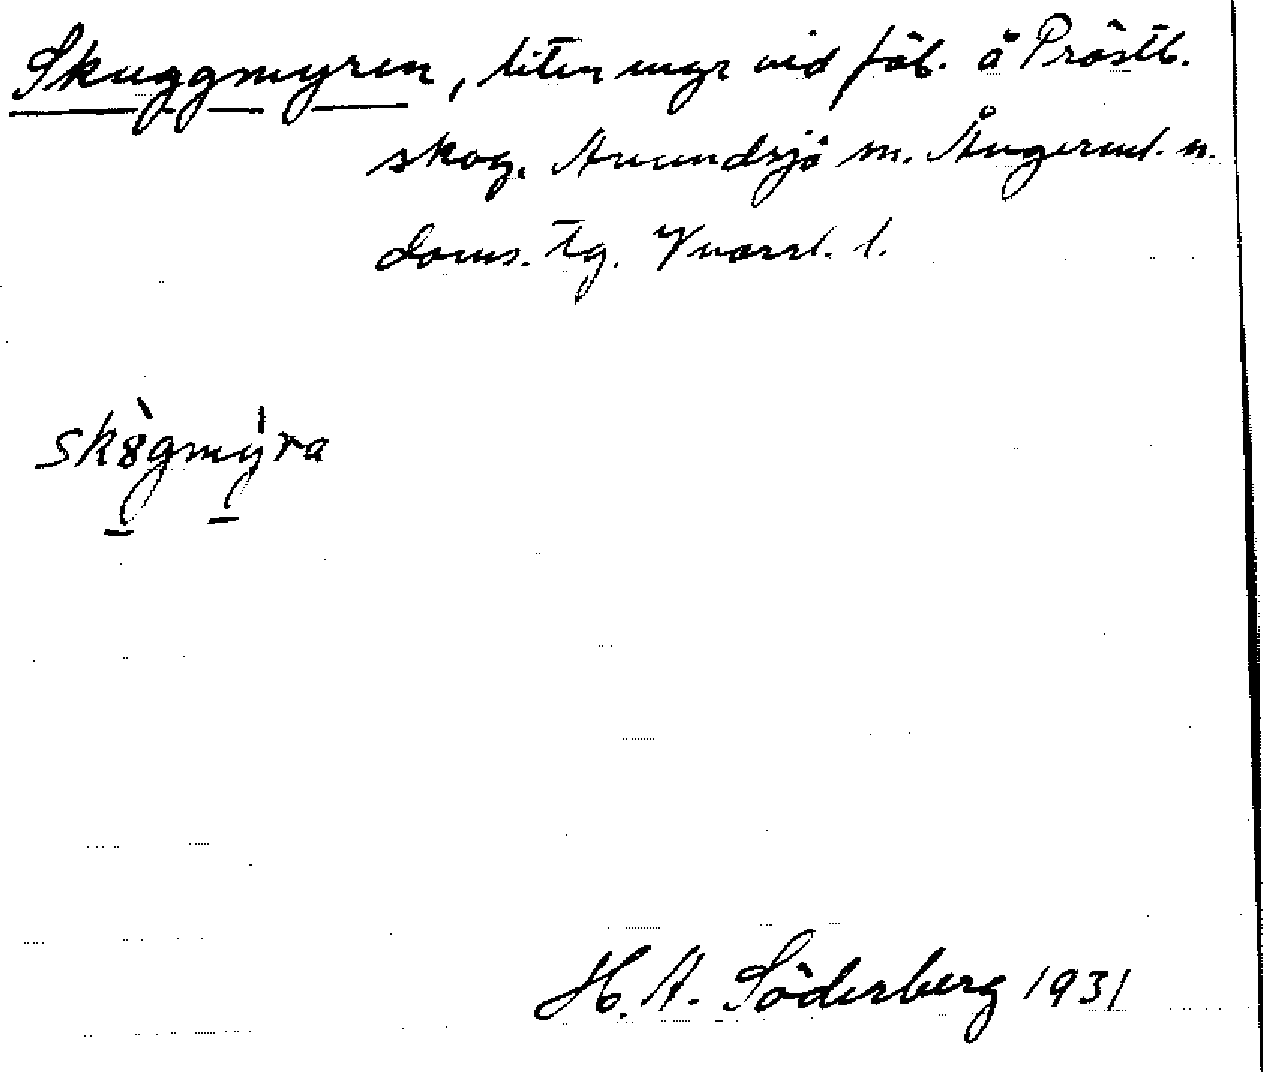 Skuggmyren, liten myr vid fäb. å Prästb.
skog. Anundsjö sn. Ångerml. n.
doms. tg. Västernorrl. l.
skȣ̀gmýra
H. A. Söderberg 1931